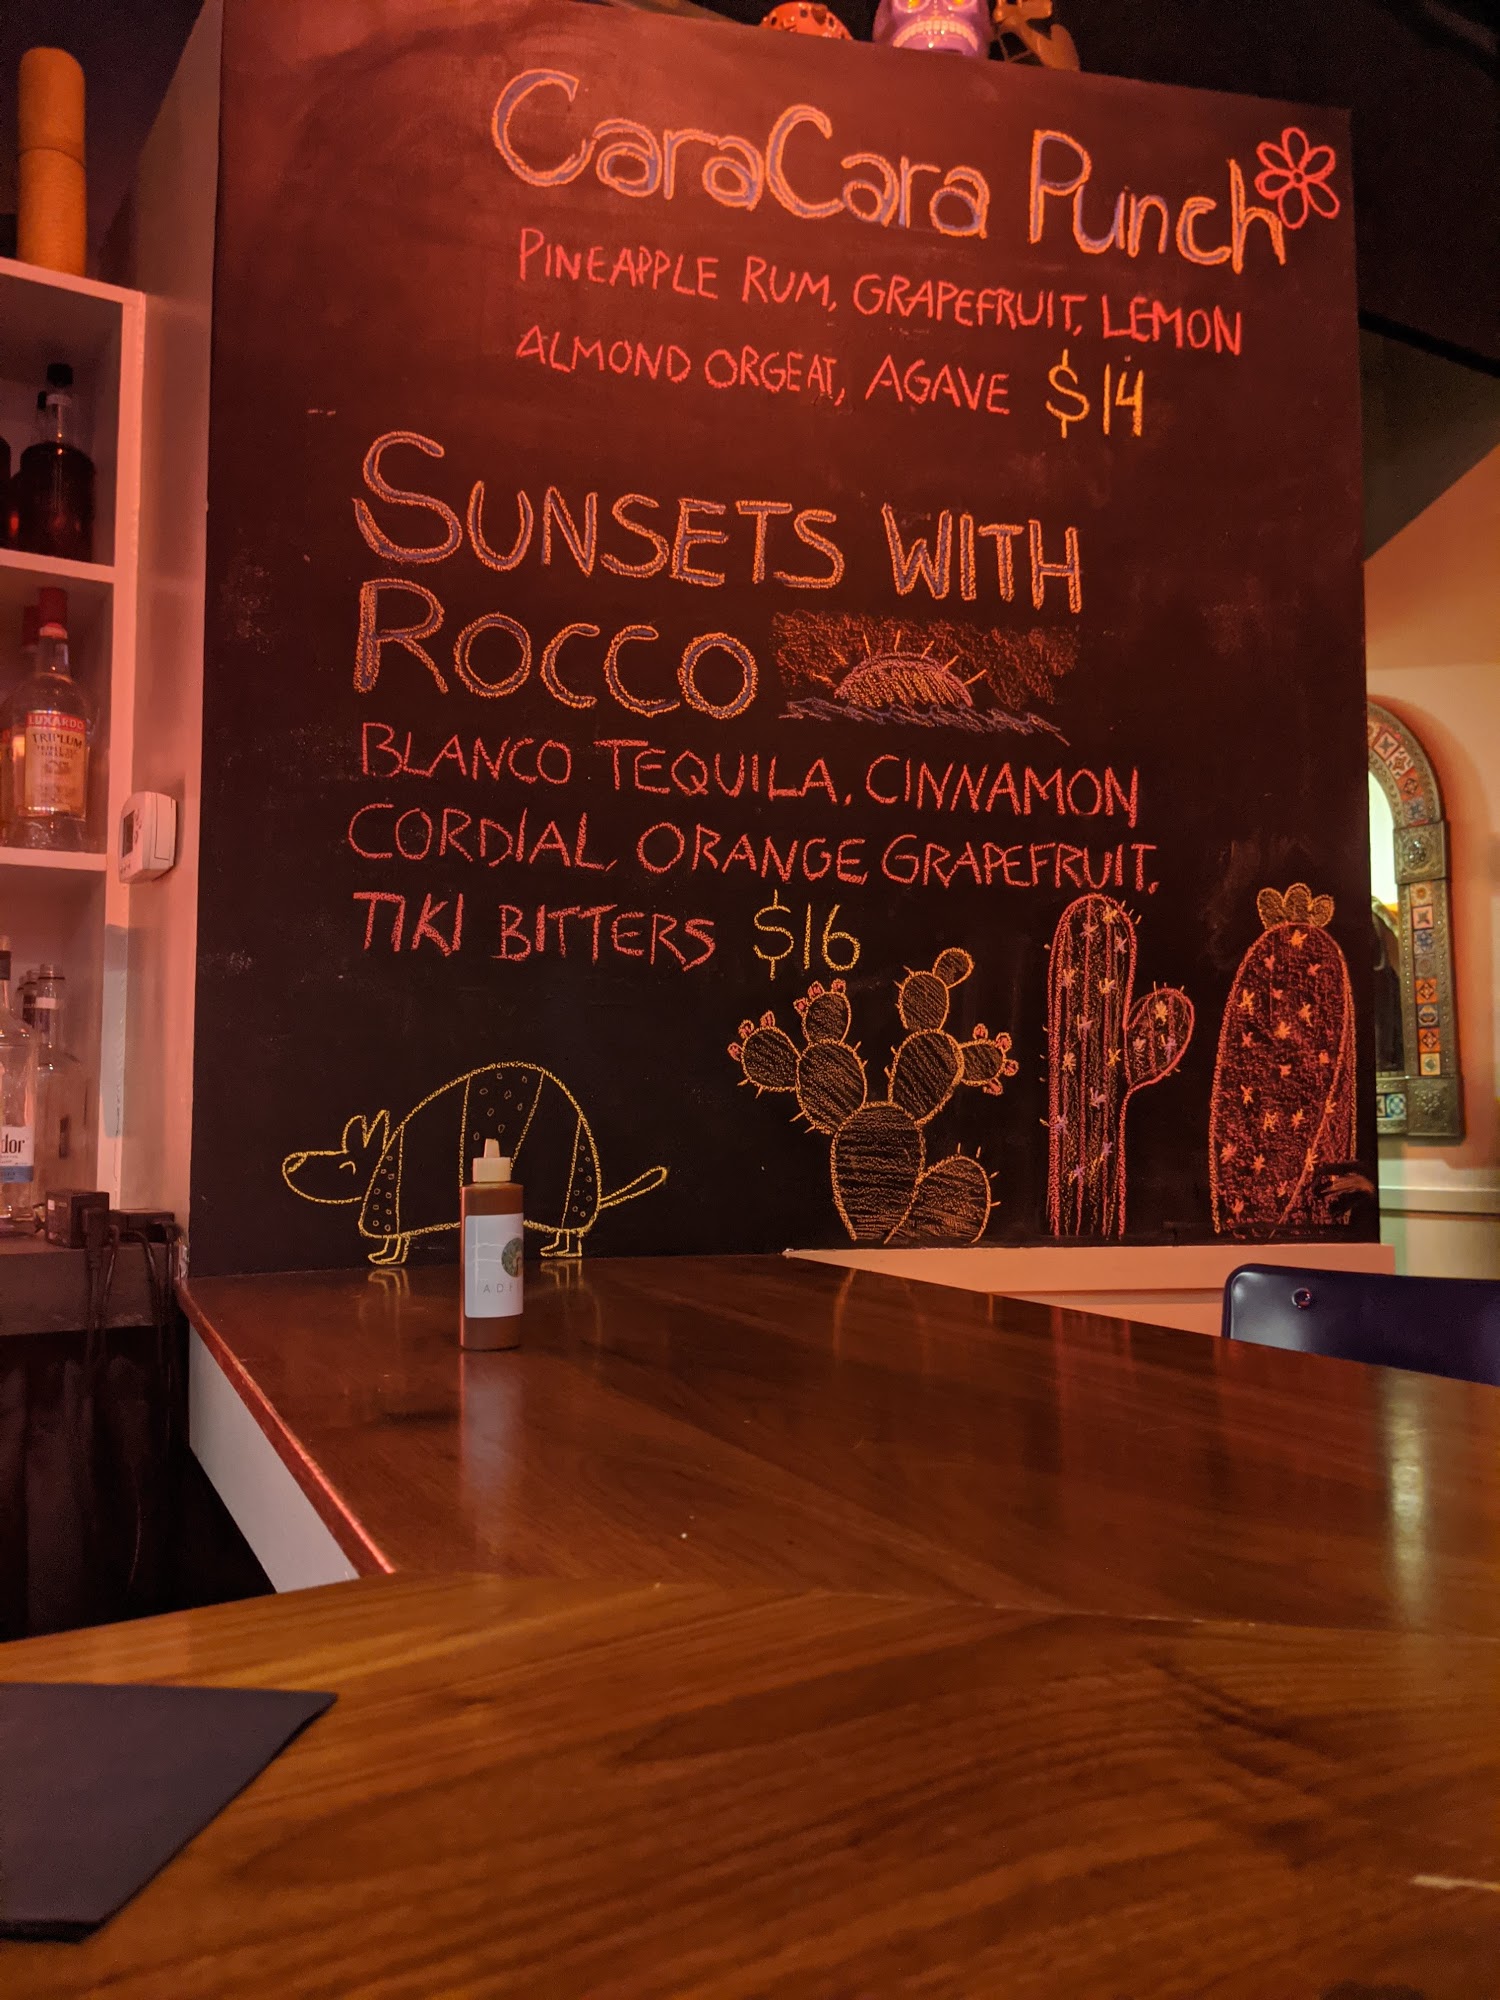 CaraCara Punch
PINEAPPLE RUM, GRAPEFRUIT, LEMON
ALMOND ORGEAT, AGAVE $14
SUNSETS WITH
ROCCO
BLANCO TEQUILA, CINNAMON
CORDIAL, ORANGE, GRAPEFRUIT,
TIKI BITTERS $16
LUXARDO
TRIPLUM
dor
AD